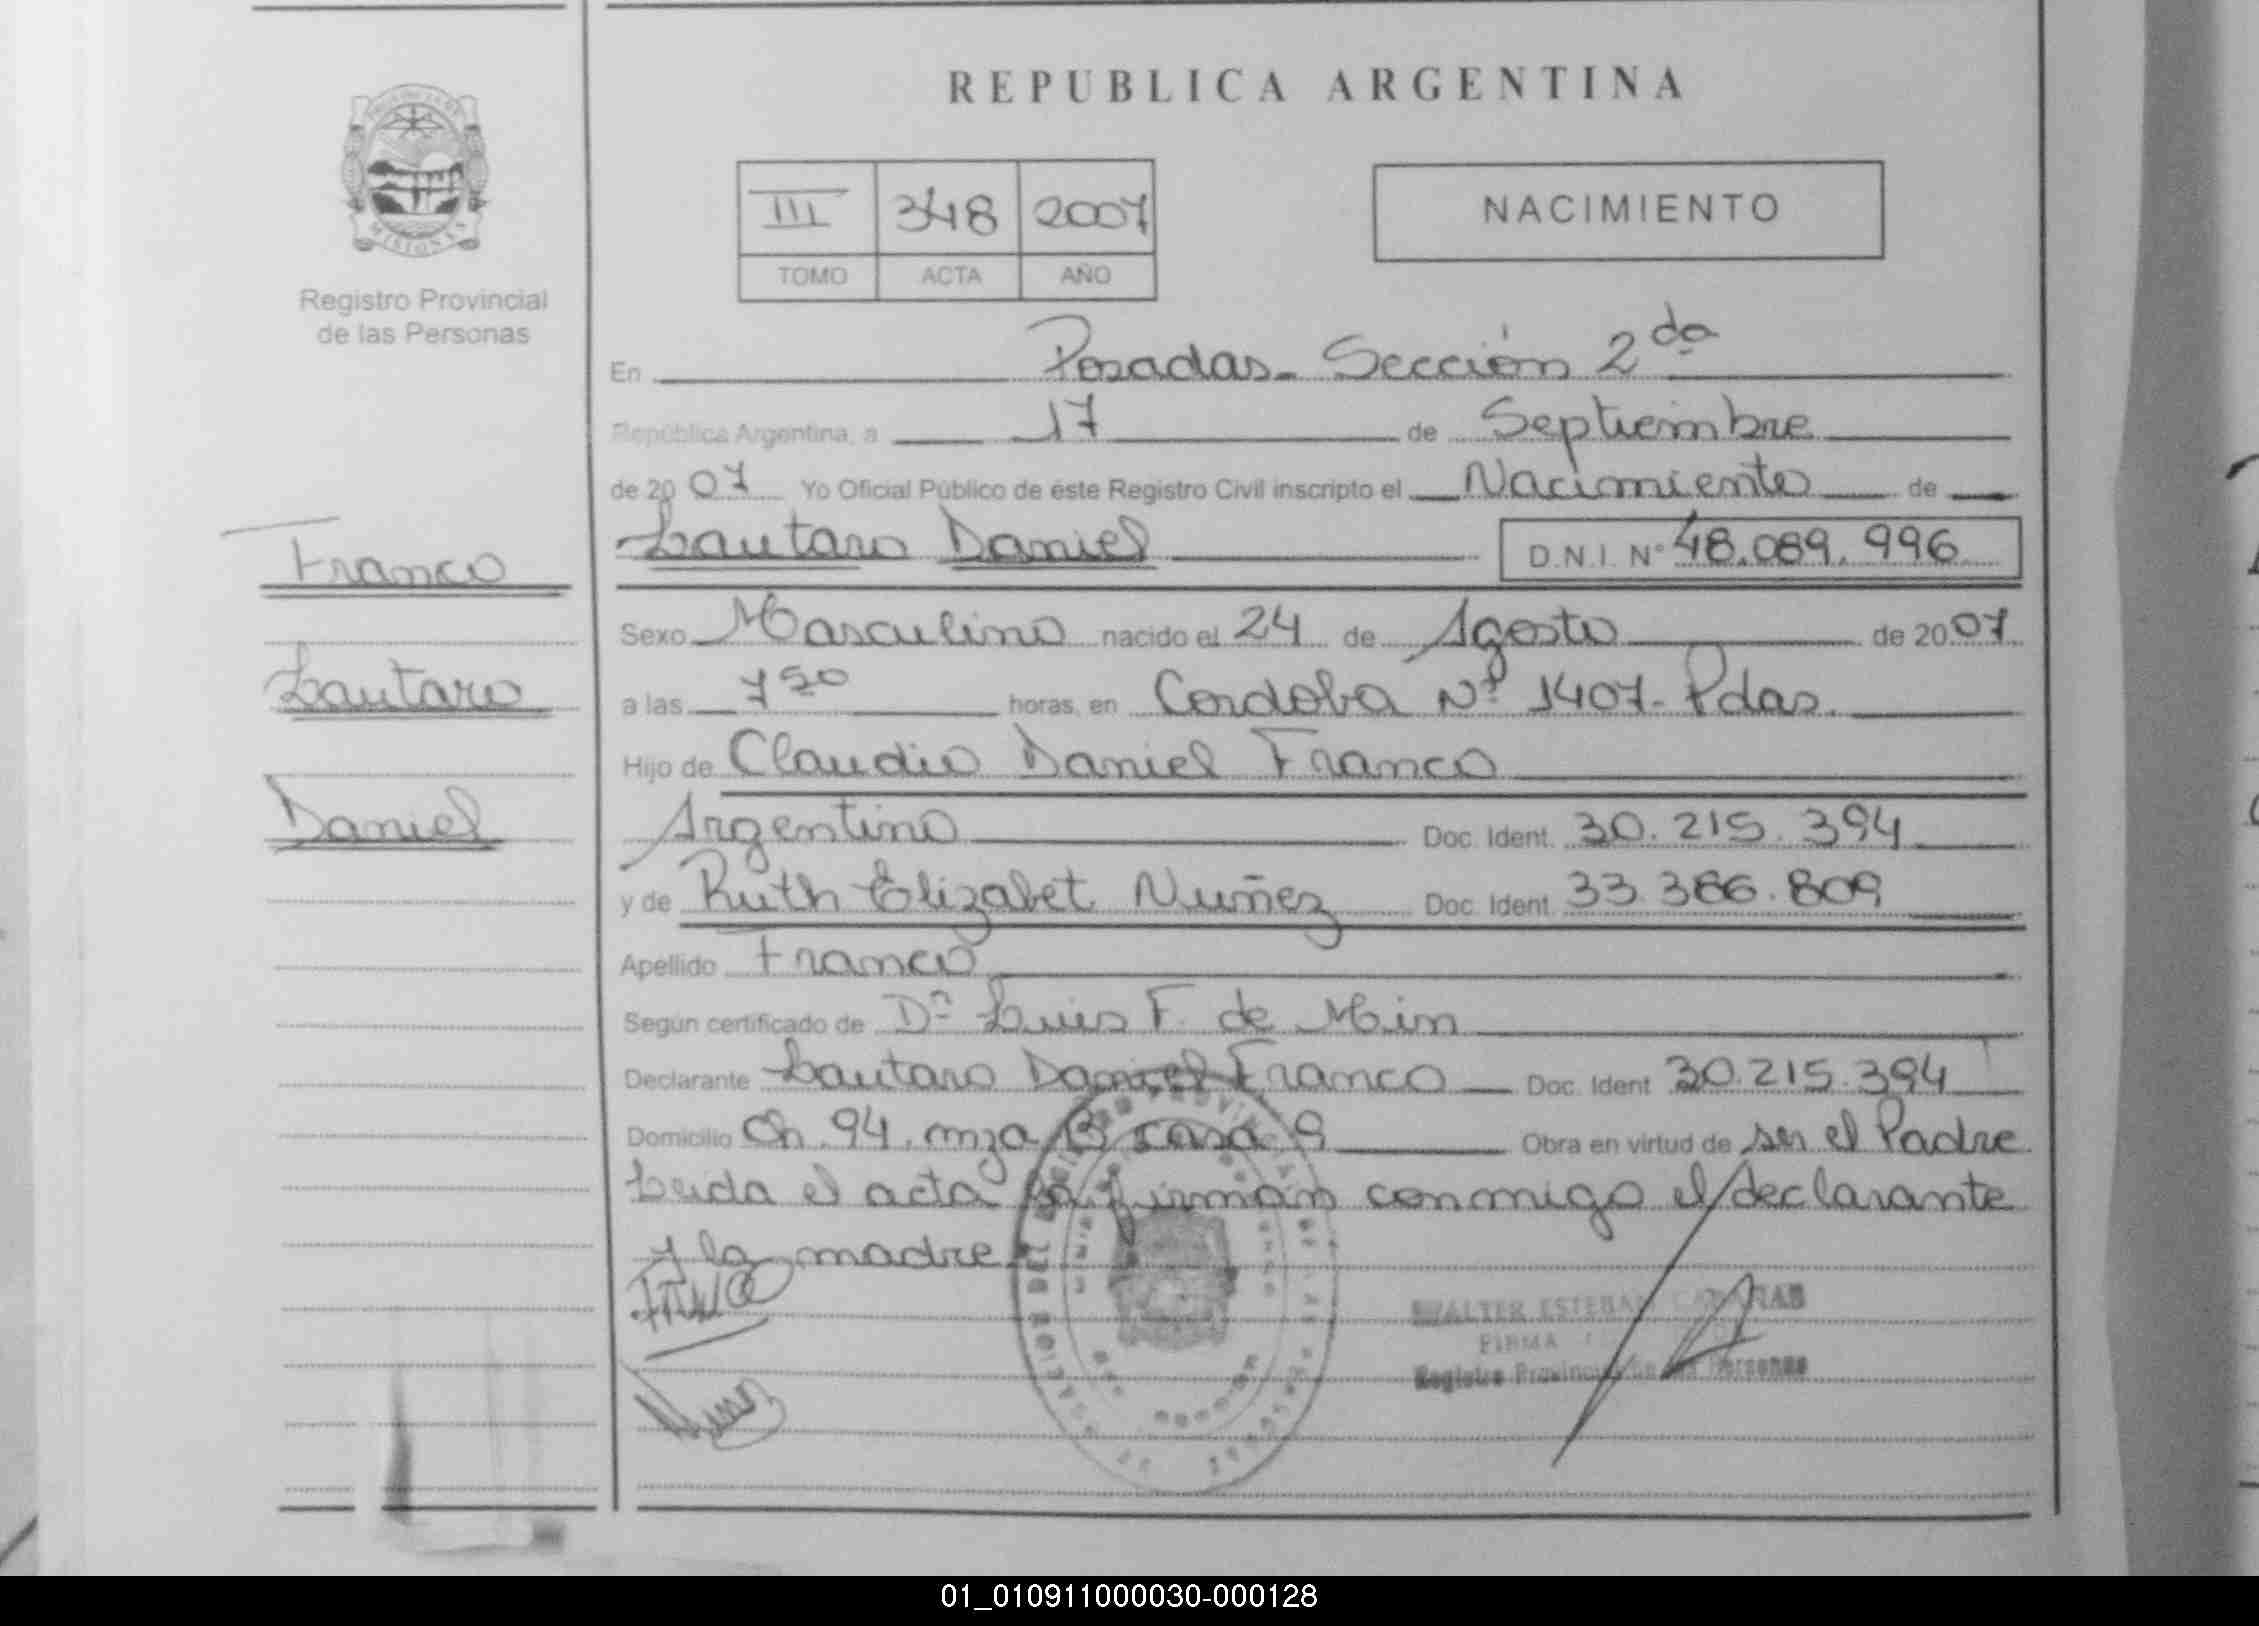 REPUBLICA ARGENTINA
PROVINCIA DE
MISIONES
Registro Provincial
de las Personas
III 348 2007
TOMO ACTA AÑO
NACIMIENTO
En Posadas - Sección 2da
República Argentina, a 17 de Septiembre
de 2007 Yo Oficial Público de éste Registro Civil inscripto el Nacimiento de
Lautaro Daniel D.N.I. Nº 48.089.996
Sexo Masculino nacido el 24 de Agosto de 2007
a las 7 20 horas, en Cordoba Nº 1407 - Pdas.
Hijo de Claudio Daniel Franco
Argentino Doc. Ident. 30.215.394
y de Ruth Elizabet Nuñez Doc. Ident. 33.386.809
Apellido Franco
Según certificado de Dn Luis F. de Mim
Declarante Lautaro Daniel Franco Doc. Ident 30.215.394
Domicilio Ch. 94. mza B casa 9 Obra en virtud de ser el Padre
Leida el acta la firman conmigo el declarante
y la madre
Franco
Lautaro
Daniel
WALTER ESTEBAN
FIRMA
Registro Provincial de las Personas
01_010911000030-000128